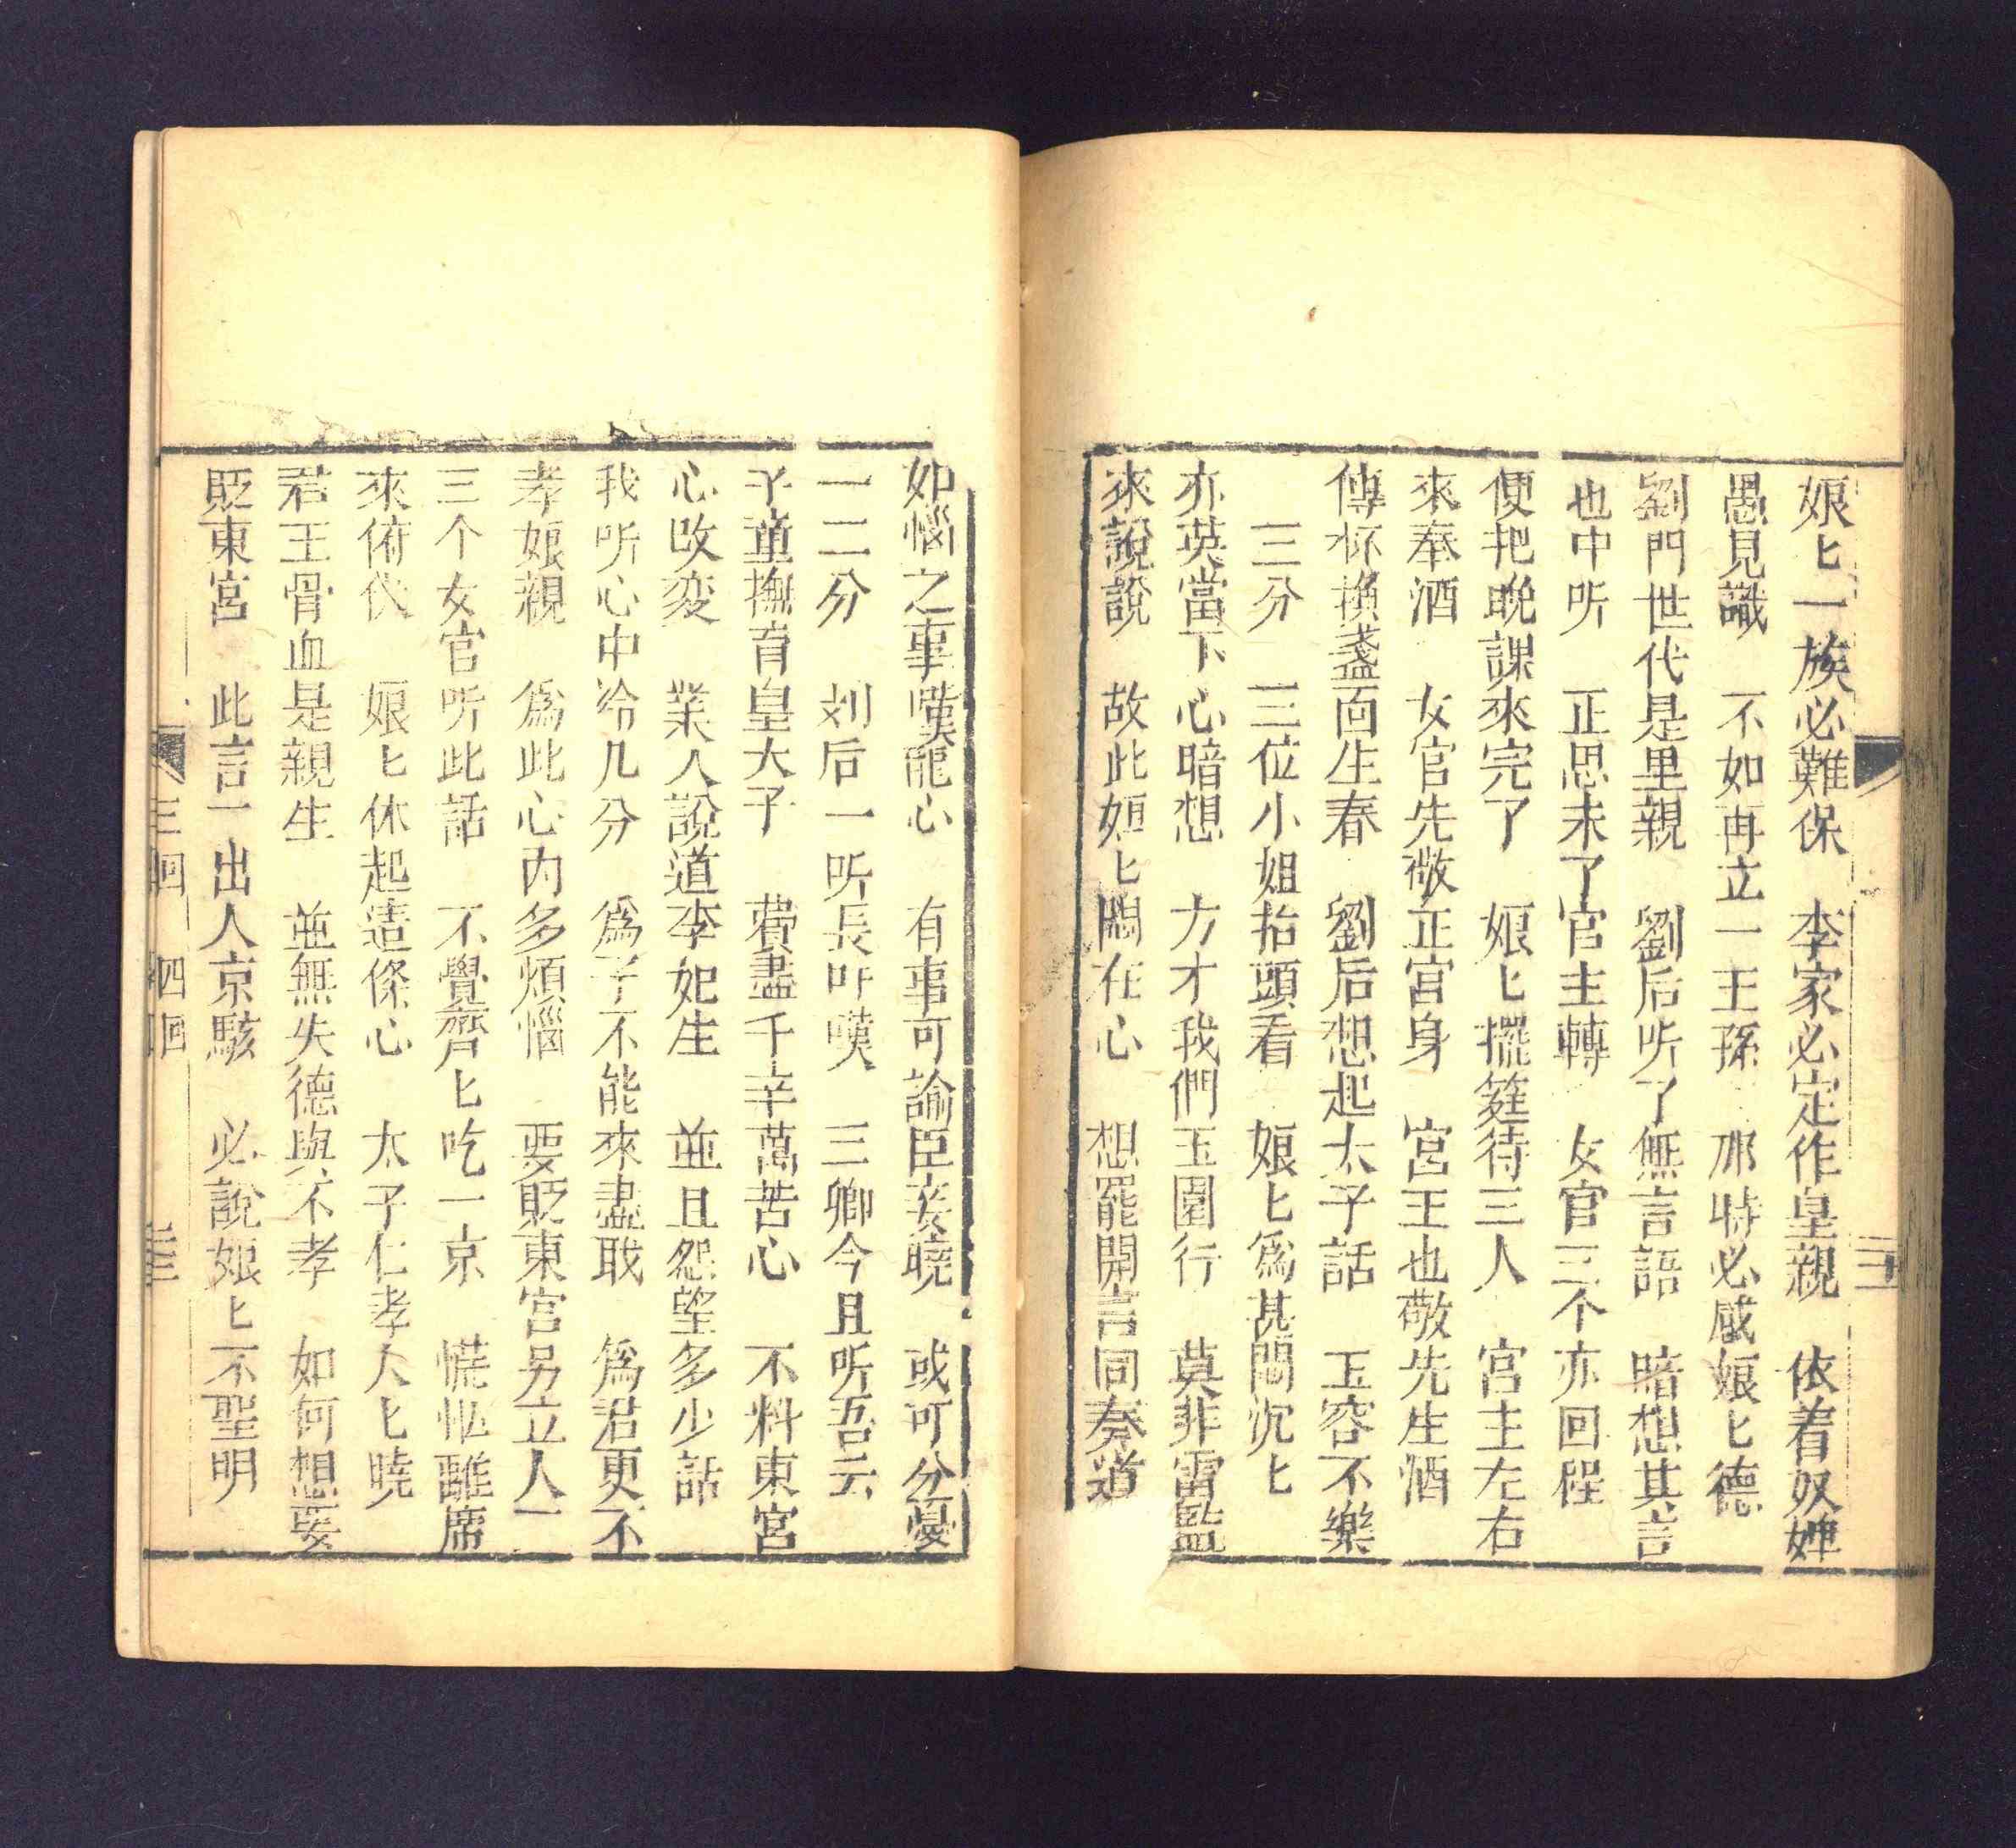 娘匕一族必難保　李家必定作皇親　依着奴婢
愚見識　不如再立一王孫　那時必感娘匕德
劉門世代是里親　劉后听了無言語　暗想其言
也中听　正思未了官主轉　女官三个亦回程
便把晚課來完了　娘匕擺筵待三人　宮主左右
來奉酒　女官先敬正宮身　宮王也敬先生酒
傳杯換盞面生春　劉后想起太子話　玉容不樂
一三分　三位小姐抬頭看　娘匕爲甚悶沉匕
亦英當下心暗想　方才我們玉園行　莫非雷監
來說說　故此娘匕悶在心　想罷開言同奏道
如惱之事嘆龍心　有事可諭臣妾曉　或可分憂
一二分　刘后一听長吁嘆　三卿今且听吾云
子童撫育皇太子　費盡千辛萬苦心　不料東宮
心改変　業人說道李妃生　並且怨望多少話
我听心中冷几分　爲子不能來盡敢　爲君更不
孝娘親　爲此心内多煩惱　要貶東宮另立人一
三个女官听此話　不覺齊匕吃一京　慌忙離席
來俯伏　娘匕休起這條心　太子仁孝人匕曉
君王骨血是親生　並無失德與不孝　如何想要
貶東宮　此言一出人京駭　必說娘匕不聖明
三回　四回　三